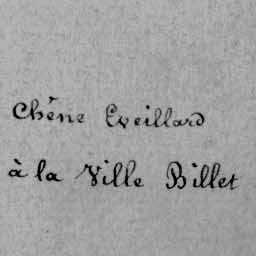 Chêne Eveillard
à la Ville Billet